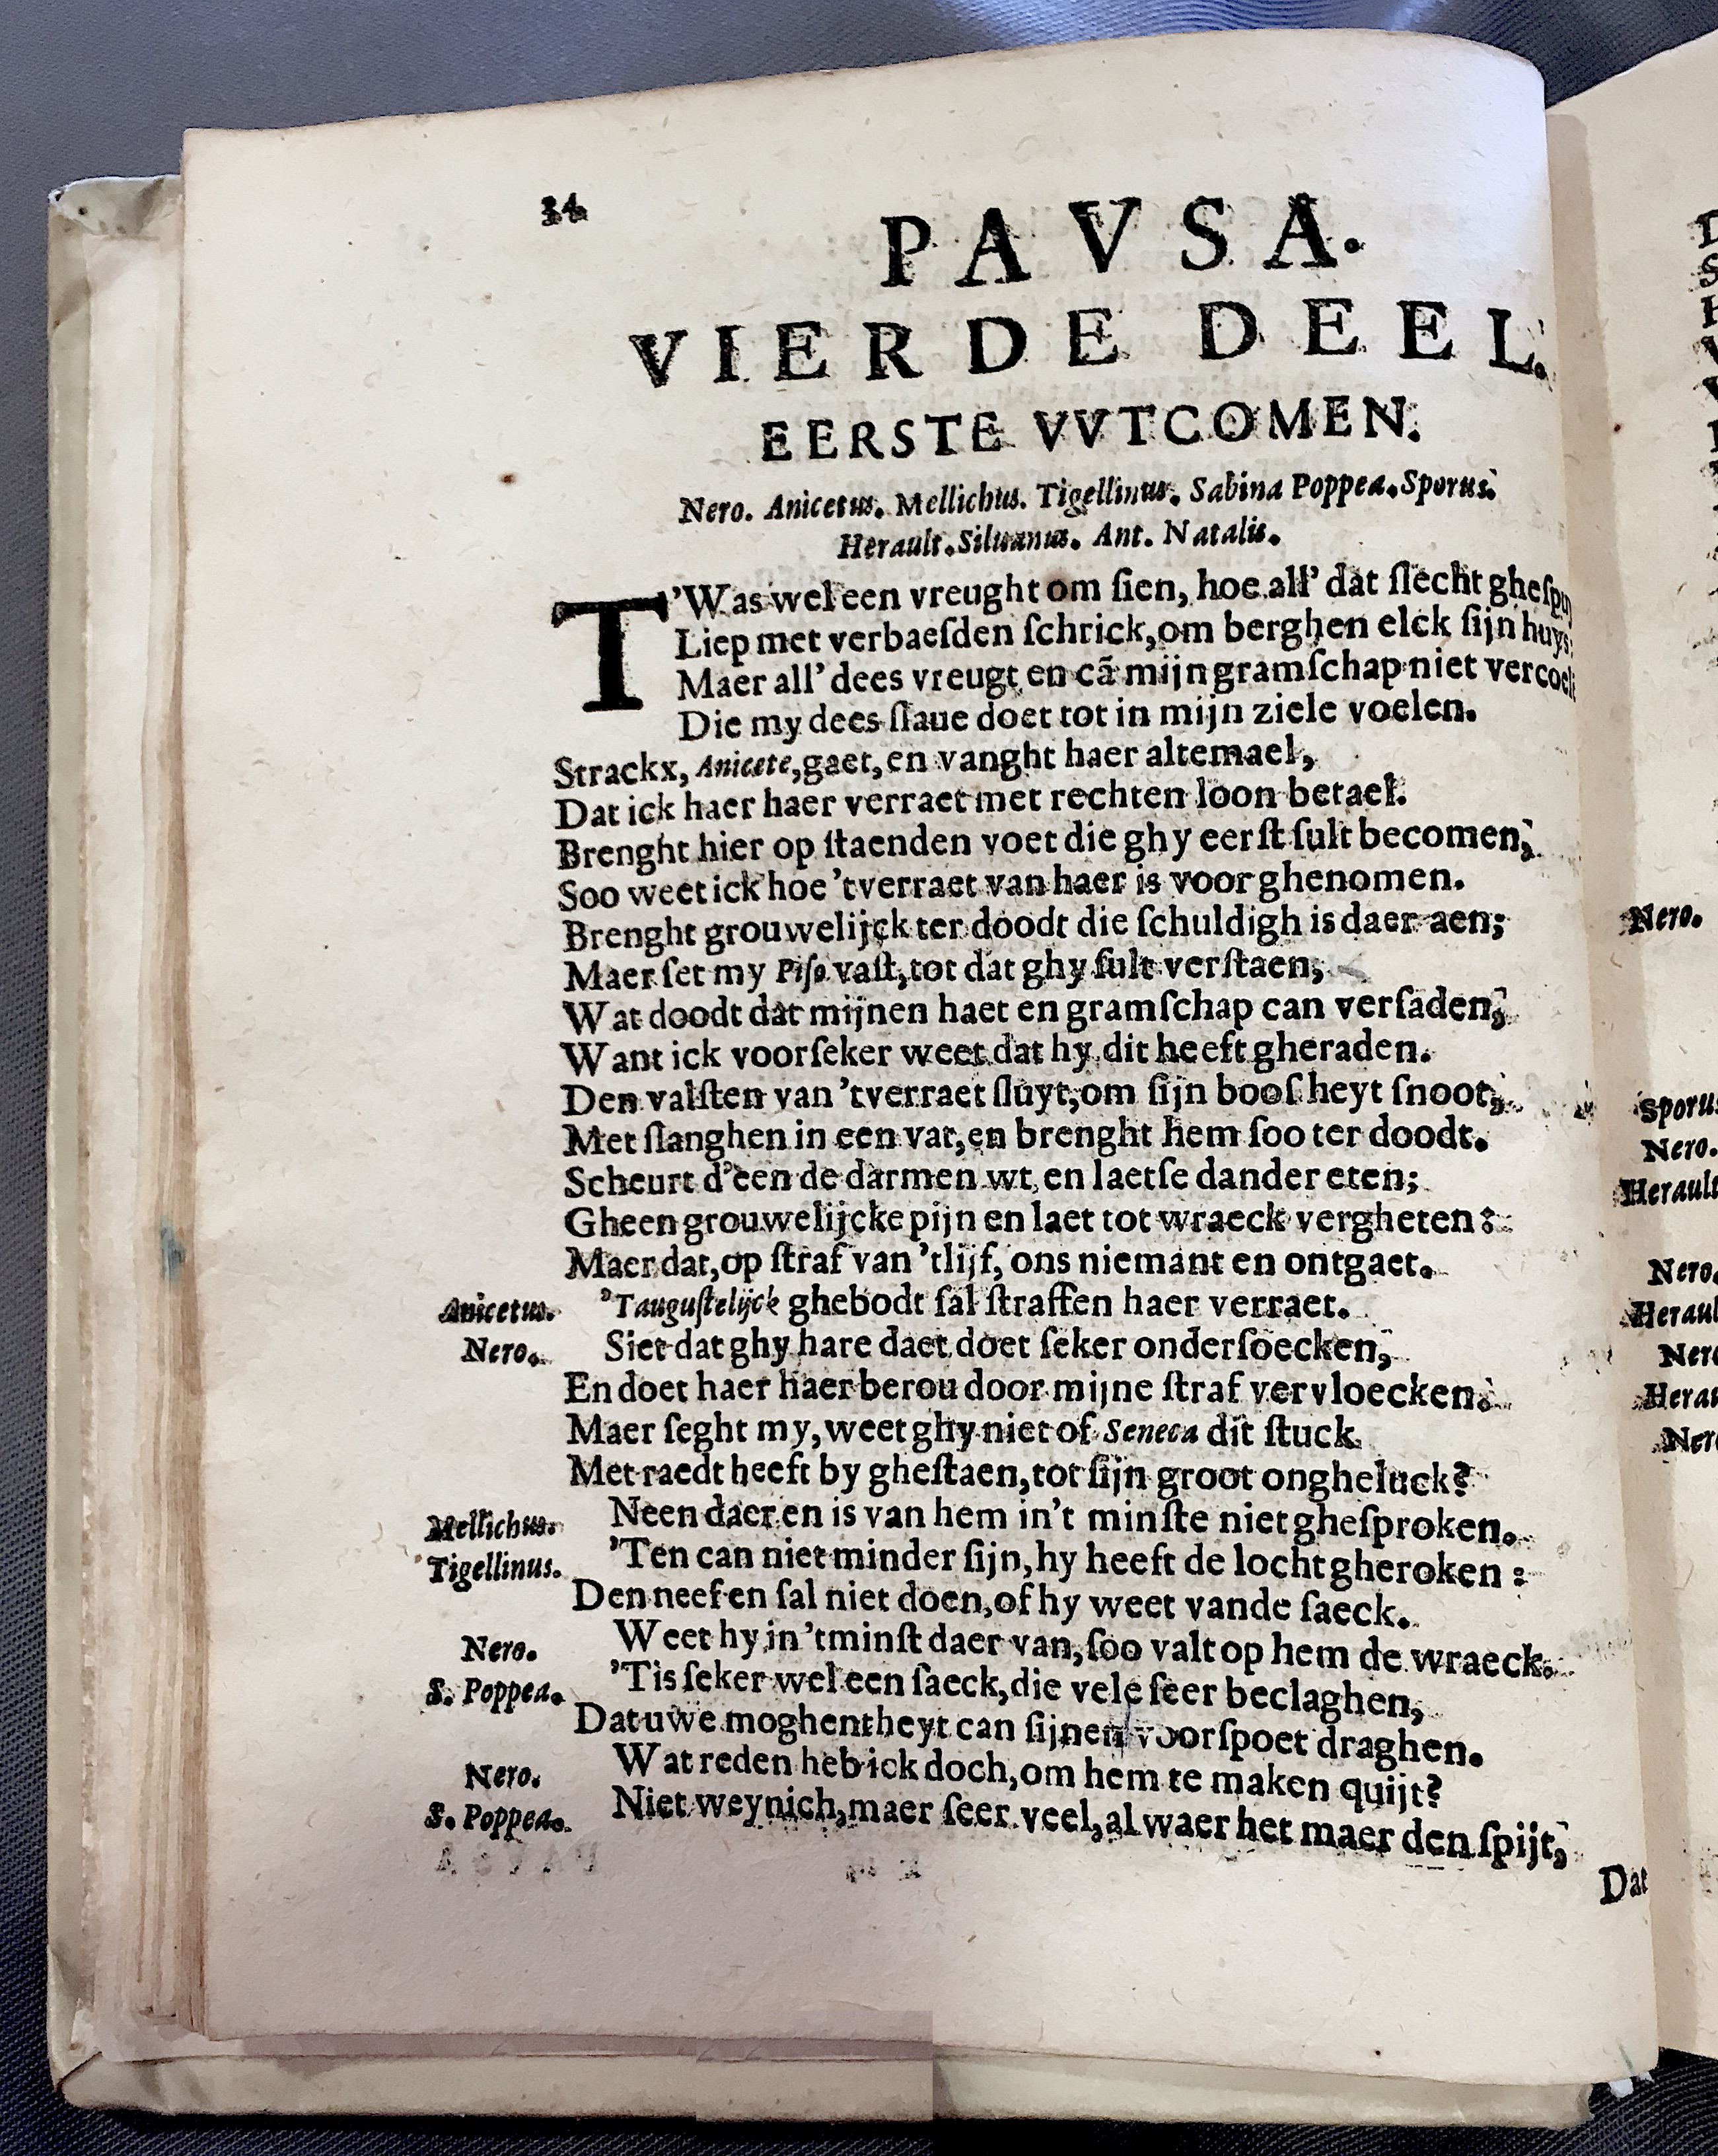 34
PAVSA.
VIERDE DEEL.
EERSTE VVTCOMEN.
Nero. Anicetus. Mellichus. Tigellinus. Sabina Poppea. Sporus.
Herault. Siluanus. Ant. Natalis.
T'Was wel een vreught om ſien, hoe all' dat ſlecht
Liep met verbaeſden ſchrick, om berghen elck ſijn huys
Maer all' dees vreugt en cã mijn gramſchap niet
Die my dees ſlaue doet tot in mijn ziele voelen.
Strackx, Anicete, gaet, en vanght haer altemael,
Dat ick haer haer verraet met rechten loon betael.
Brenght hier op ſtaenden voet die ghy eerſt ſult becomen,
Soo weet ick hoe 'tverraet van haer is voor ghenomen.
Brenght grouwelijck ter doodt die ſchuldigh is daer aen;
Maer ſet my Piſo vaſt, tot dat ghy ſult verſtaen,
Wat doodt dat mijnen haet en gramſchap can verſaden,
Want ick voorſeker weet dat hy dit heeft gheraden.
Den valſten van 'tverraet ſluyt, om ſijn booſheyt ſnoot,
Met ſlanghen in een vat, en brenght hem ſoo ter doodt.
Scheurt d'een de darmen wt, en laetſe dander eten;
Gheen grouwelijcke pijn en laet tot wraeck vergheten:
Maer dat, op ſtraf van 'tlijf, ons niemant en ontgaet.
Anicetus. 'Tauguſtelijck ghebodt ſal ſtraffen haer verraet.
Nero. Siet dat ghy hare daet doet ſeker onderſoecken,
En doet haer haer berou door mijne ſtraf vervloecken.
Maer ſeght my, weet ghy niet of Seneca dit ſtuck
Met raedt heeft by gheſtaen, tot ſijn groot ongheluck?
Mellichus. Neen daer en is van hem in't minſte niet gheſproken.
Tigellinus. 'Ten can niet minder ſijn, hy heeft de locht gheroken:
Den neef en ſal niet doen, of hy weet vande ſaeck.
Nero. Weet hy in 'tminſt daer van, ſoo valt op hem de wraeck.
S. Poppea. 'Tis ſeker wel een ſaeck, die vele ſeer beclaghen,
Dat uwe moghentheyt can ſijnen voorſpoet draghen.
Nero. Wat reden heb ick doch, om hem te maken quijt?
S. Poppea. Niet weynich, maer ſeer veel, al waer het maer den ſpijt,
Dat
Nero.
Sporus
Nero.
Herault
Nero.
Heraul
Nero
Herau
Nero